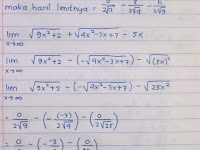 maka hasil limitnya = b/2√a - e/2√d - h/2√g
lim x→∞ √9x²+2 + √4x²-3x+7 - 5x
lim x→∞ √9x²+2 - (-√4x²-3x+7) - √(5x)²
lim x→∞ √9x²+2 - (-√4x²-3x+7) - √25x²
= 0/2√9 - (-(-3)/2√4) - (0/2√25)
= 0 - (-3) - (0)